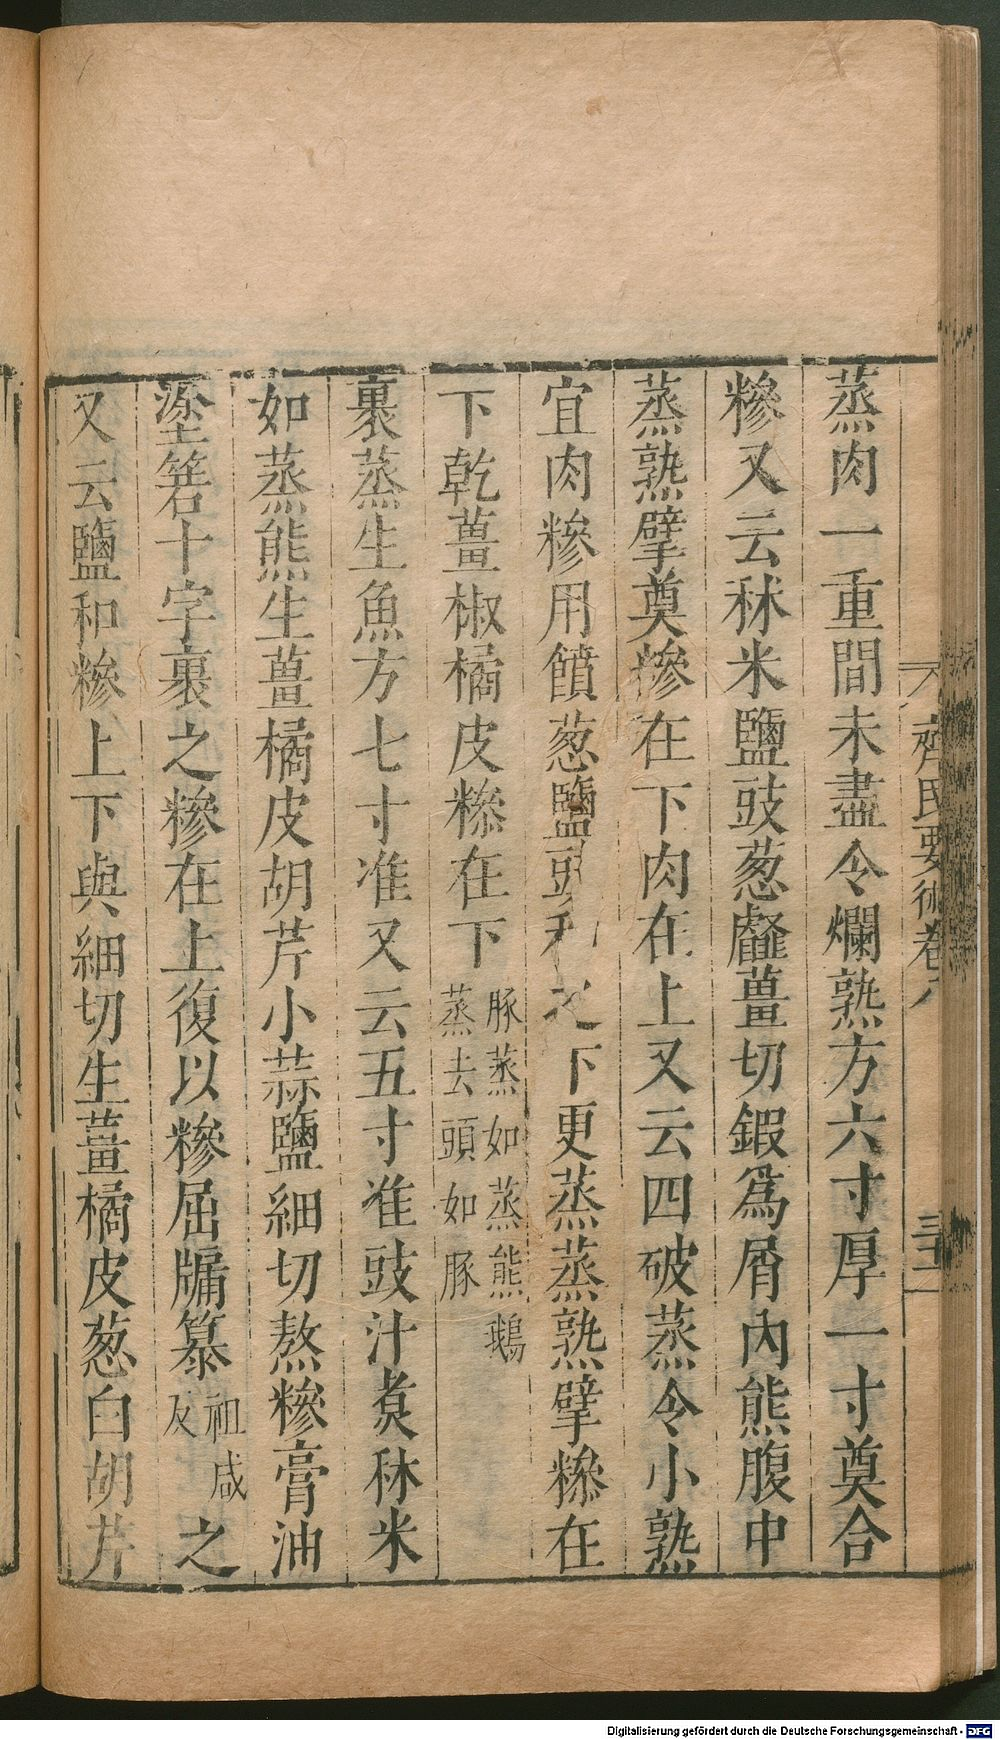 齊民要術卷八
三十一
蒸肉一重間未盡令爛熟方六寸厚一寸奠合
糝又云秫米鹽豉葱䪥薑切鍜爲屑內熊腹中
蒸熟擘奠糝在下肉在上又云四破蒸令小熟
宜肉糝用饙葱鹽豉和之下更蒸蒸熟擘糝在
下乾薑椒橘皮糝在下豚蒸如蒸熊鵝
蒸去頭如豚
裹蒸生魚方七寸准又云五寸准豉汁煑秫米
如蒸熊生薑橘皮胡芹小蒜鹽細切熬糝膏油
塗箬十字裹之糝在上復以糝屈牖篸祖咸
反之
又云鹽和糝上下與細切生薑橘皮葱白胡芹
Digitalisierung gefördert durch die Deutsche Forschungsgemeinschaft - DFG